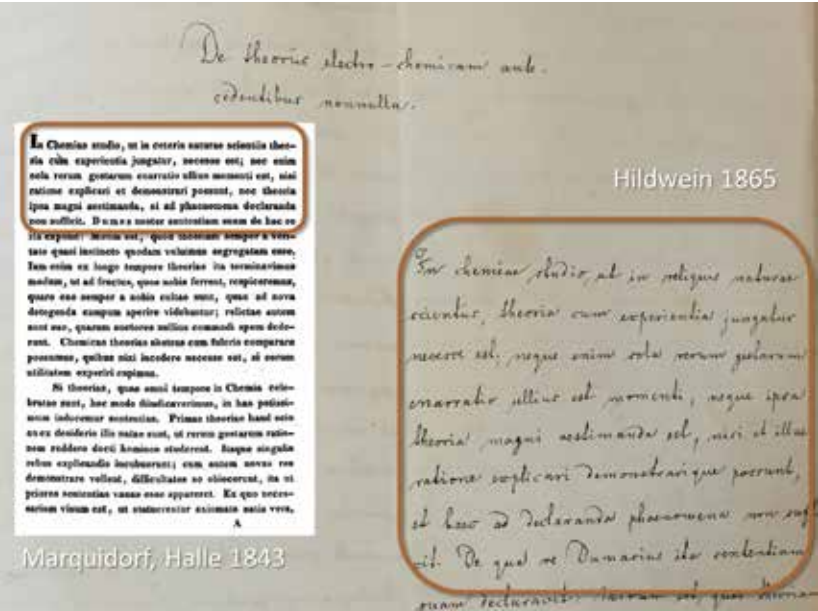 De theoriis electro-chemicam ante-
cedentibus nonnulla.
In Chemiae studio, ut in ceteris naturae scientiis theo-
ria cum experientia jungatur, necesse est; nec enim
sola rerum gestarum enarratio ullius momenti est, nisi
ratione explicari et demonstrari possunt, nec theoria
ipsa magni aestimanda, si ad phaenomena declaranda
non sufficit. Dumas noster sententiam suam de hac re
ita exponit: Mirum est, quod theoriam semper a veri-
tate quasi instincto quodam volumus segregatam esse.
Iam enim ex longo tempore theoriae ita terminavimus
modum, ut ad fructus, quos nobis ferrent, respiceremus,
quare eae semper a nobis cultae sunt, quae ad nova
detegenda campum aperire videbantur; relictae autem
sunt eae, quarum auctores nullius commodi spem dede-
runt. Chemicas theorias skeuus cum fulcris comparare
possumus, quibus nixi incedere necesse est, si earum
utilitatem experiri cupimus.
Si theorias, quae omni tempore in Chemia cele-
bratae sunt, hoc modo diiudicaverimus, in has potissi-
mum inducemur sententias. Primae theoriae haud scio
an ex desiderio illo natae sunt, ut rerum gestarum ratio-
nem reddere docti homines studerent. Itaque singulis
rebus explicandis incubuerunt; cum autem novas res
demonstrare vellent, difficultates se obiecerunt, ita ut
priores sententias vanas esse appareret. Ex quo neces-
sarium visum est, ut statuerentur axiomata satis vera,
A
Marquidorf, Halle 1843
Hildwein 1865
In chemiae studio, ut in reliquis naturae
scientiis, theoria cum experientia jungatur
necesse est, neque enim sola rerum gestarum
enarratio ullius est momenti, neque ipsa
theoria magni aestimanda est, nisi et illae
ratione explicari demonstrarique possunt,
et haec ad declaranda phaenomena non suffi
cit. De qua re Dumasius ita sententiam
suam declaravit: Mirum est, quod theoriam